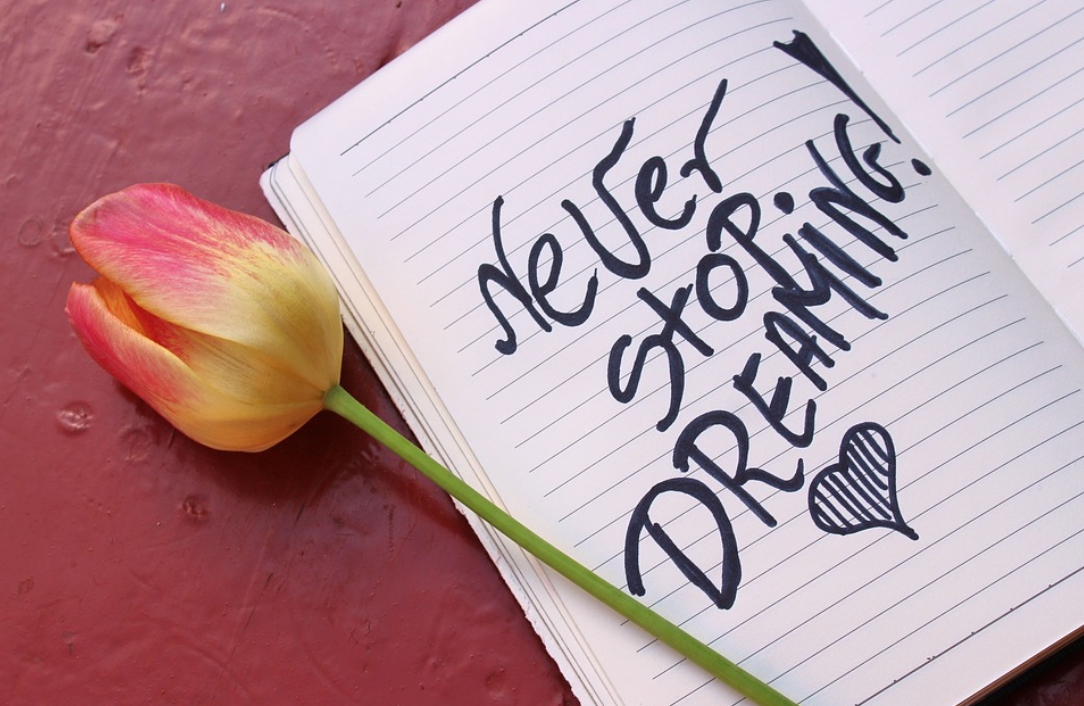 NeVer
StOP
DREAMING!